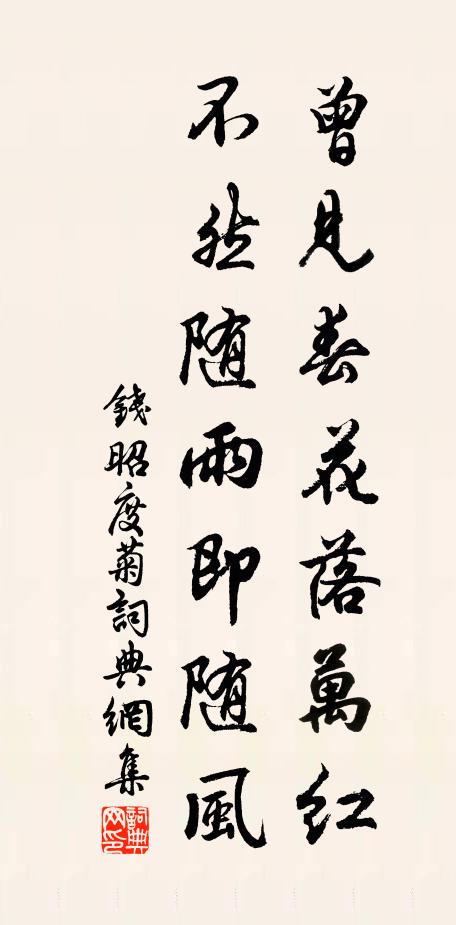 曾見春花落萬紅
不然随雨即随風
錢昭度菊詞典網集
詞典網印